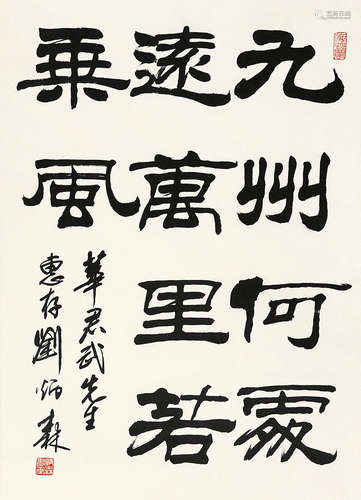 九州何處
遠萬里若
乘風
華君武先生
惠存劉炳森